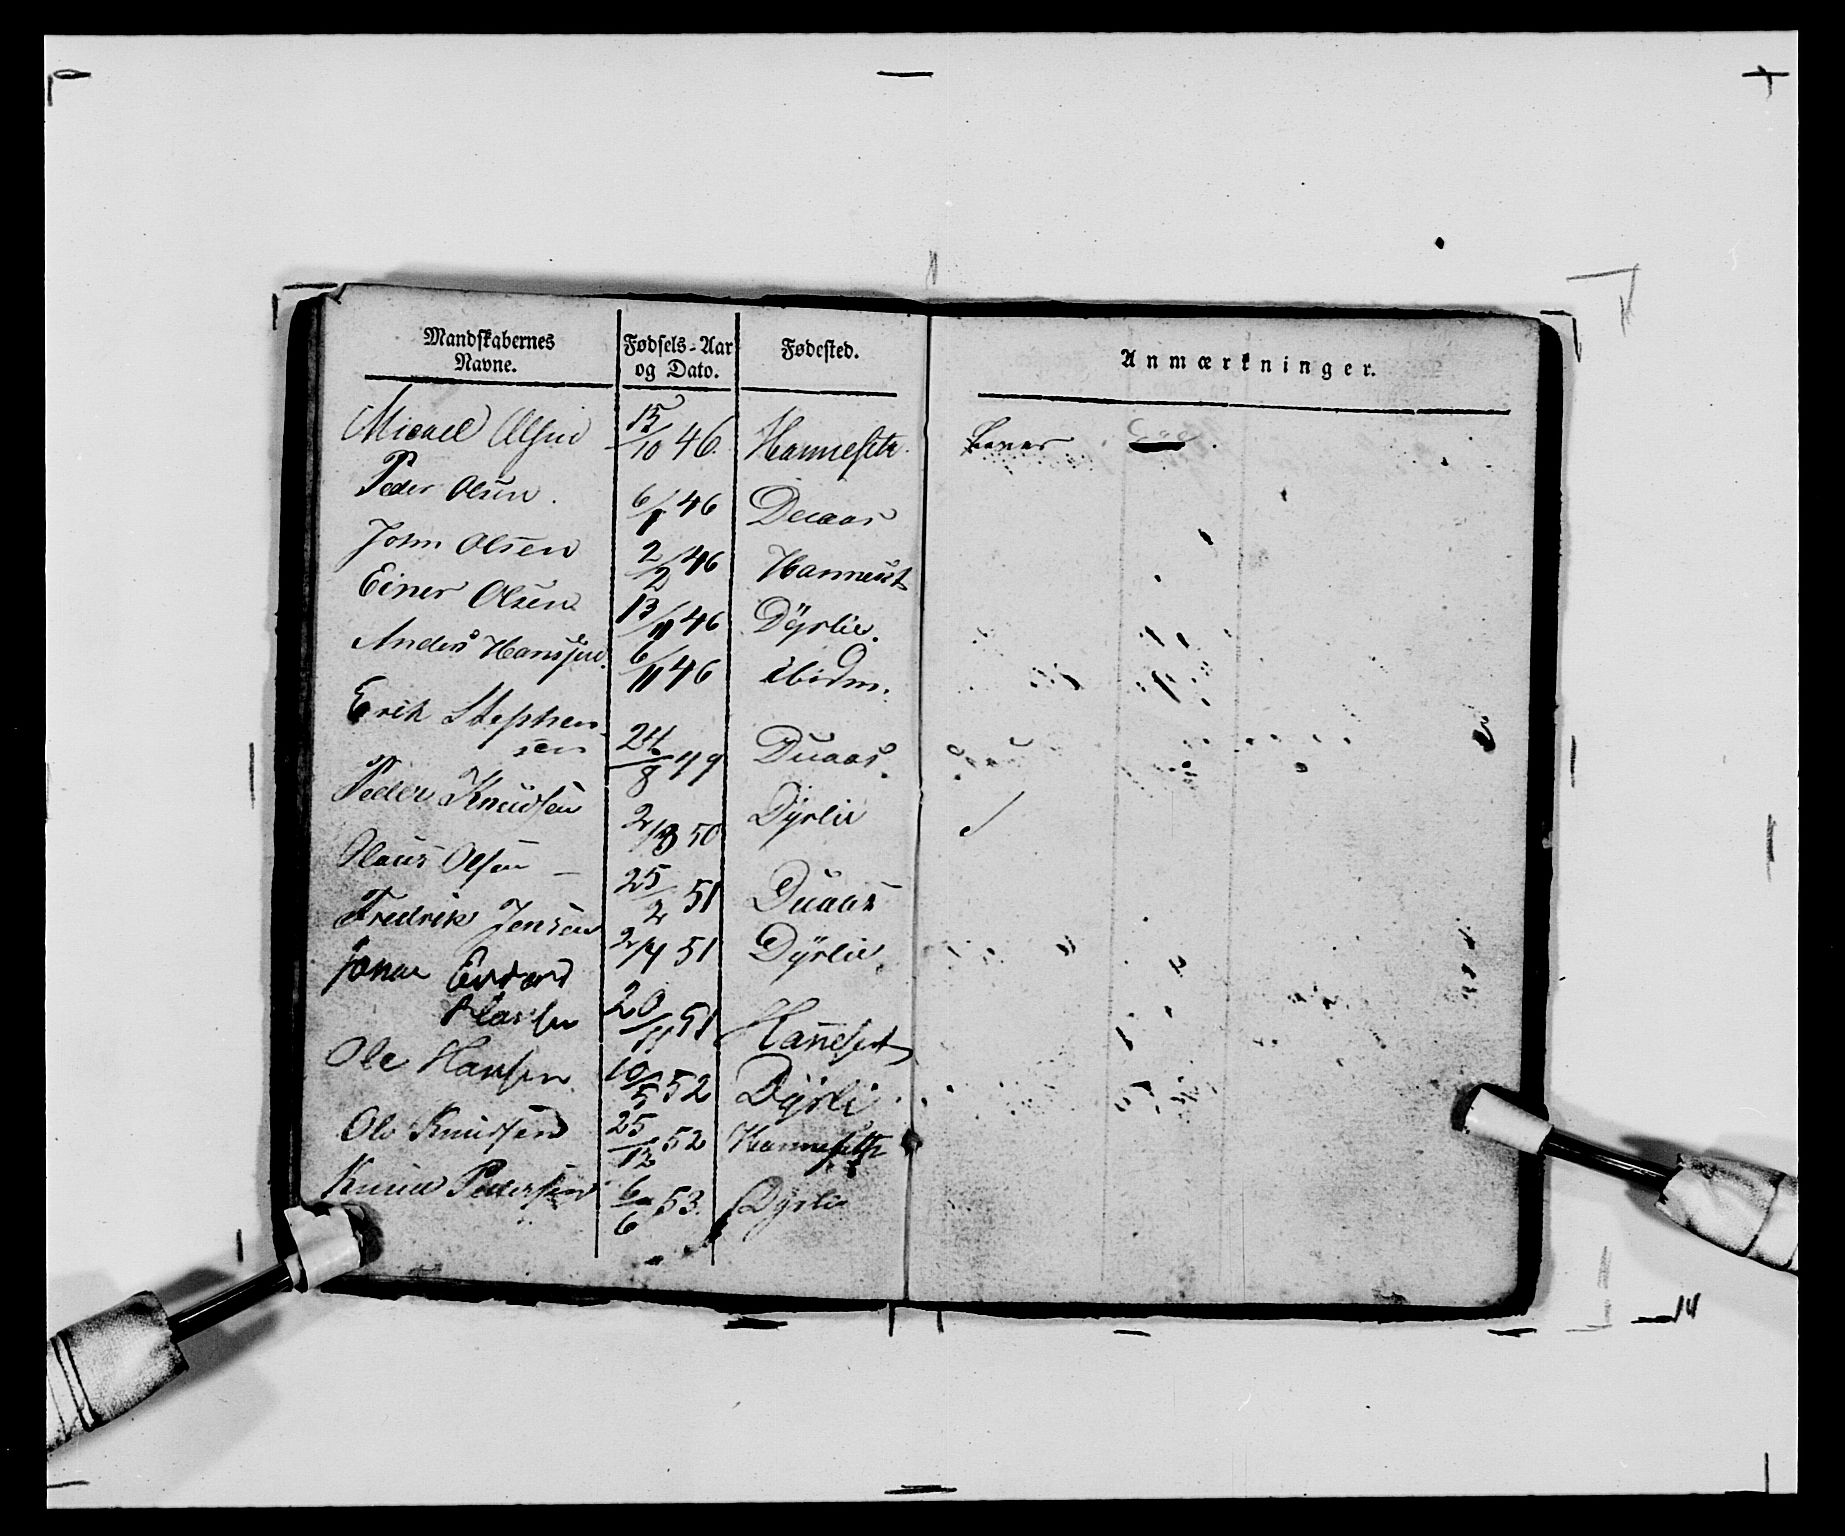 Mandskabernes Navne. Fødsels-Aar og Dato. Fødested. Anmærkninger.
Micael Olsen 15/10 46. Hannesete.
Peder Olsen. 6/1 46 Duaas
John Olsen 2/2 46 Hannest
Einer Olsen 13/11 46 Dÿrlie.
Anders Hanssen. 6/11 46 ibidm.
Erik Stephen
sen 24/8 49 Duaas.
Peder Knudsen 2/8 50 Dÿrlie
Olaus Olsen — 25/2 51 Duaas
Fredrik Jensen 2/4 51 Dÿrlie
Larsen 20/11 51 Hanneset
Ole Hansen 10/5 52 Dÿrli
Ole Knudsen 25/12 52 Hannesete
Knud Pedersen 6/6 53. Dyrlie
14